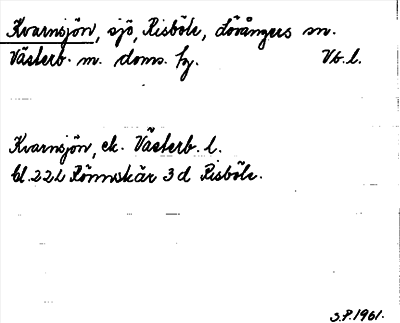 Kvarnsjön, sjö, Risböle, Lövångers sn.
Västerb. m. doms. hj. Vb. l.
Kvarnsjön, ek. Västerb. l.
bl. 22L Rönnskär 3d Risböle.
S.P. 1961.